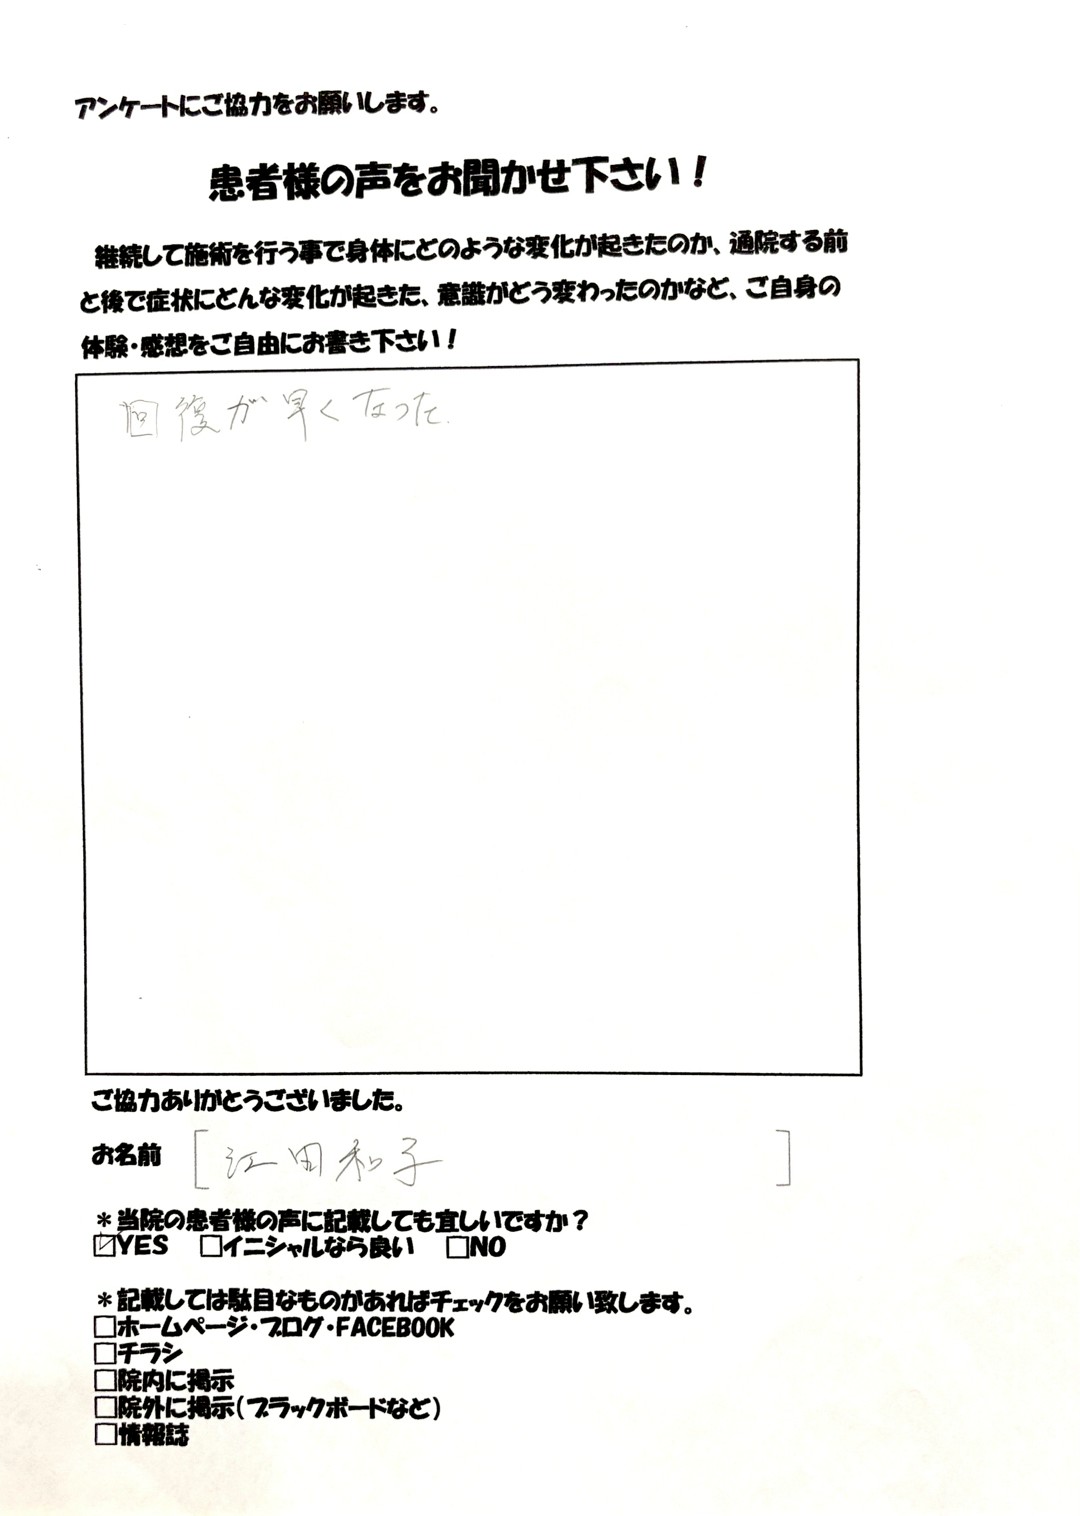 アンケートにご協力をお願いします。
患者様の声をお聞かせ下さい！
継続して施術を行う事で身体にどのような変化が起きたのか、通院する前
と後で症状にどんな変化が起きた、意識がどう変わったのかなど、ご自身の
体験・感想をご自由にお書き下さい！
回復が早くなった.
ご協力ありがとうございました。
お名前 [江田和子]
＊当院の患者様の声に記載しても宜しいですか？
☑YES □イニシャルなら良い □NO
＊記載しては駄目なものがあればチェックをお願い致します。
□ホームページ・ブログ・FACEBOOK
□チラシ
□院内に掲示
□院外に掲示（ブラックボードなど）
□情報誌